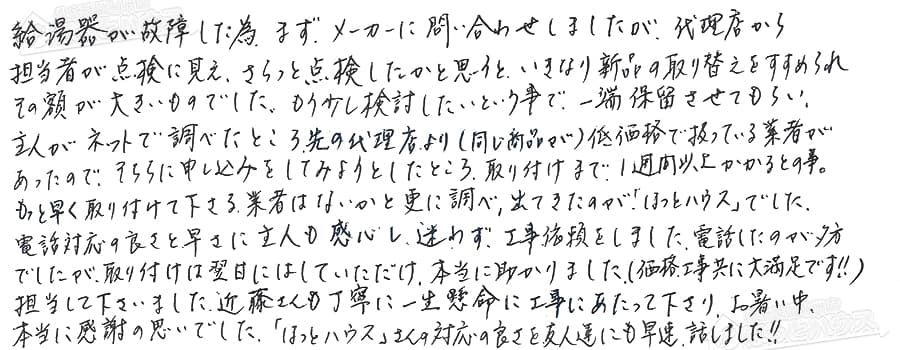 給湯器が故障した為、まず、メーカーに問い合わせしましたが、代理店から
担当者が点検に見え、さらっと点検したかと思うと、いきなり新品の取り替えをすすめられ
その額が大きいものでした。もう少し検討したいという事で、一端保留させてもらい、
主人がネットで調べたところ、先の代理店より(同じ商品が)低価格で扱っている業者が
あったので、そちらに申し込みをしてみようとしたところ、取り付けまで、1週間以上かかるとの事。
もっと早く取り付けて下さる業者はないかと更に調べ、出てきたのが「ほっとハウス」でした。
電話対応の良さと早さに主人も感心し、迷わず、工事依頼をしました。電話したのが夕方
でしたが、取り付けは翌日にはしていただけ、本当に助かりました。(価格、工事共に大満足です!!)
担当して下さいました、近藤さんも丁寧に一生懸命に工事にあたって下さり、お暑い中、
本当に感謝の思いでした。「ほっとハウス」さんの対応の良さを友人達にも早速、話しました!!